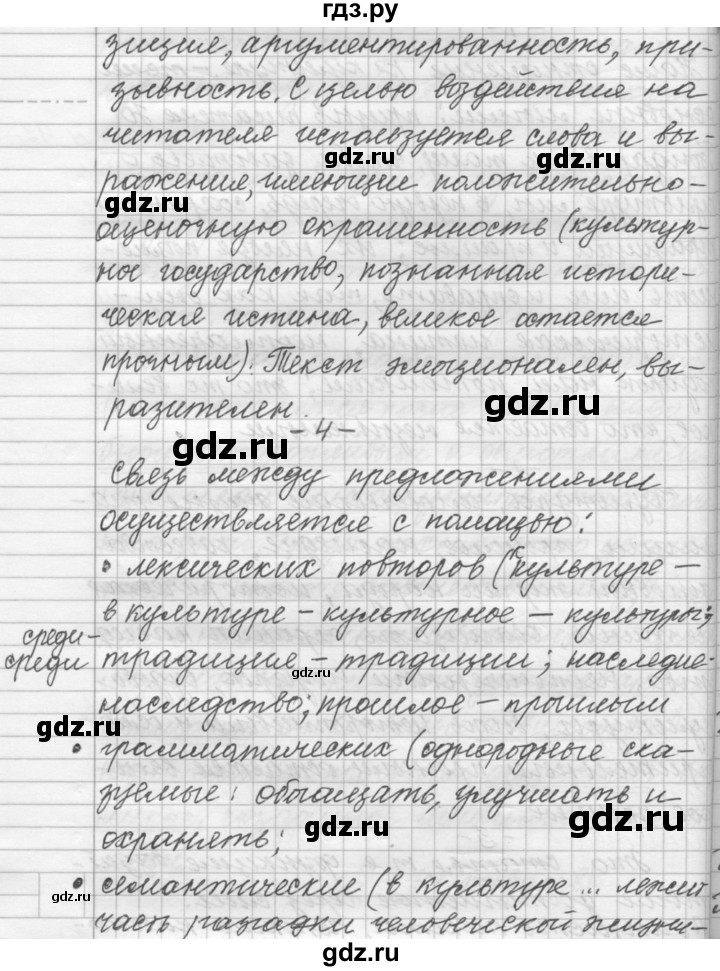 гдз.ру
зиция, аргументированность, при-
зывность. С целью воздействия на
читателя используется слова и вы-
ражения, имеющии положительно-
оценочную окрашенность (культур-
ное государство, познанная истори-
ческая истина, великое остается
прочным). Текст эмоционален, вы-
разителен.
- 4 -
Связь между предложениями
осуществляется с помощью:
• лексических повторов (культуре —
в культуре – культурное – культуры;
среди-
среди традиция – традиции; наследие-
наследство; прошлое – прошлым
• грамматических (однородные ска-
зуемые: обогащать, улучшать и
охранять;
• семантические (в культуре ... лежит
часть разгадки человеческой жизни-
gdz.ru
gdz.ru
gdz.ru
gdz.ru
gdz.ru
gdz.ru
gdz.ru
gdz.ru
gdz.ru
gdz.ru
gdz.ru
gdz.ru